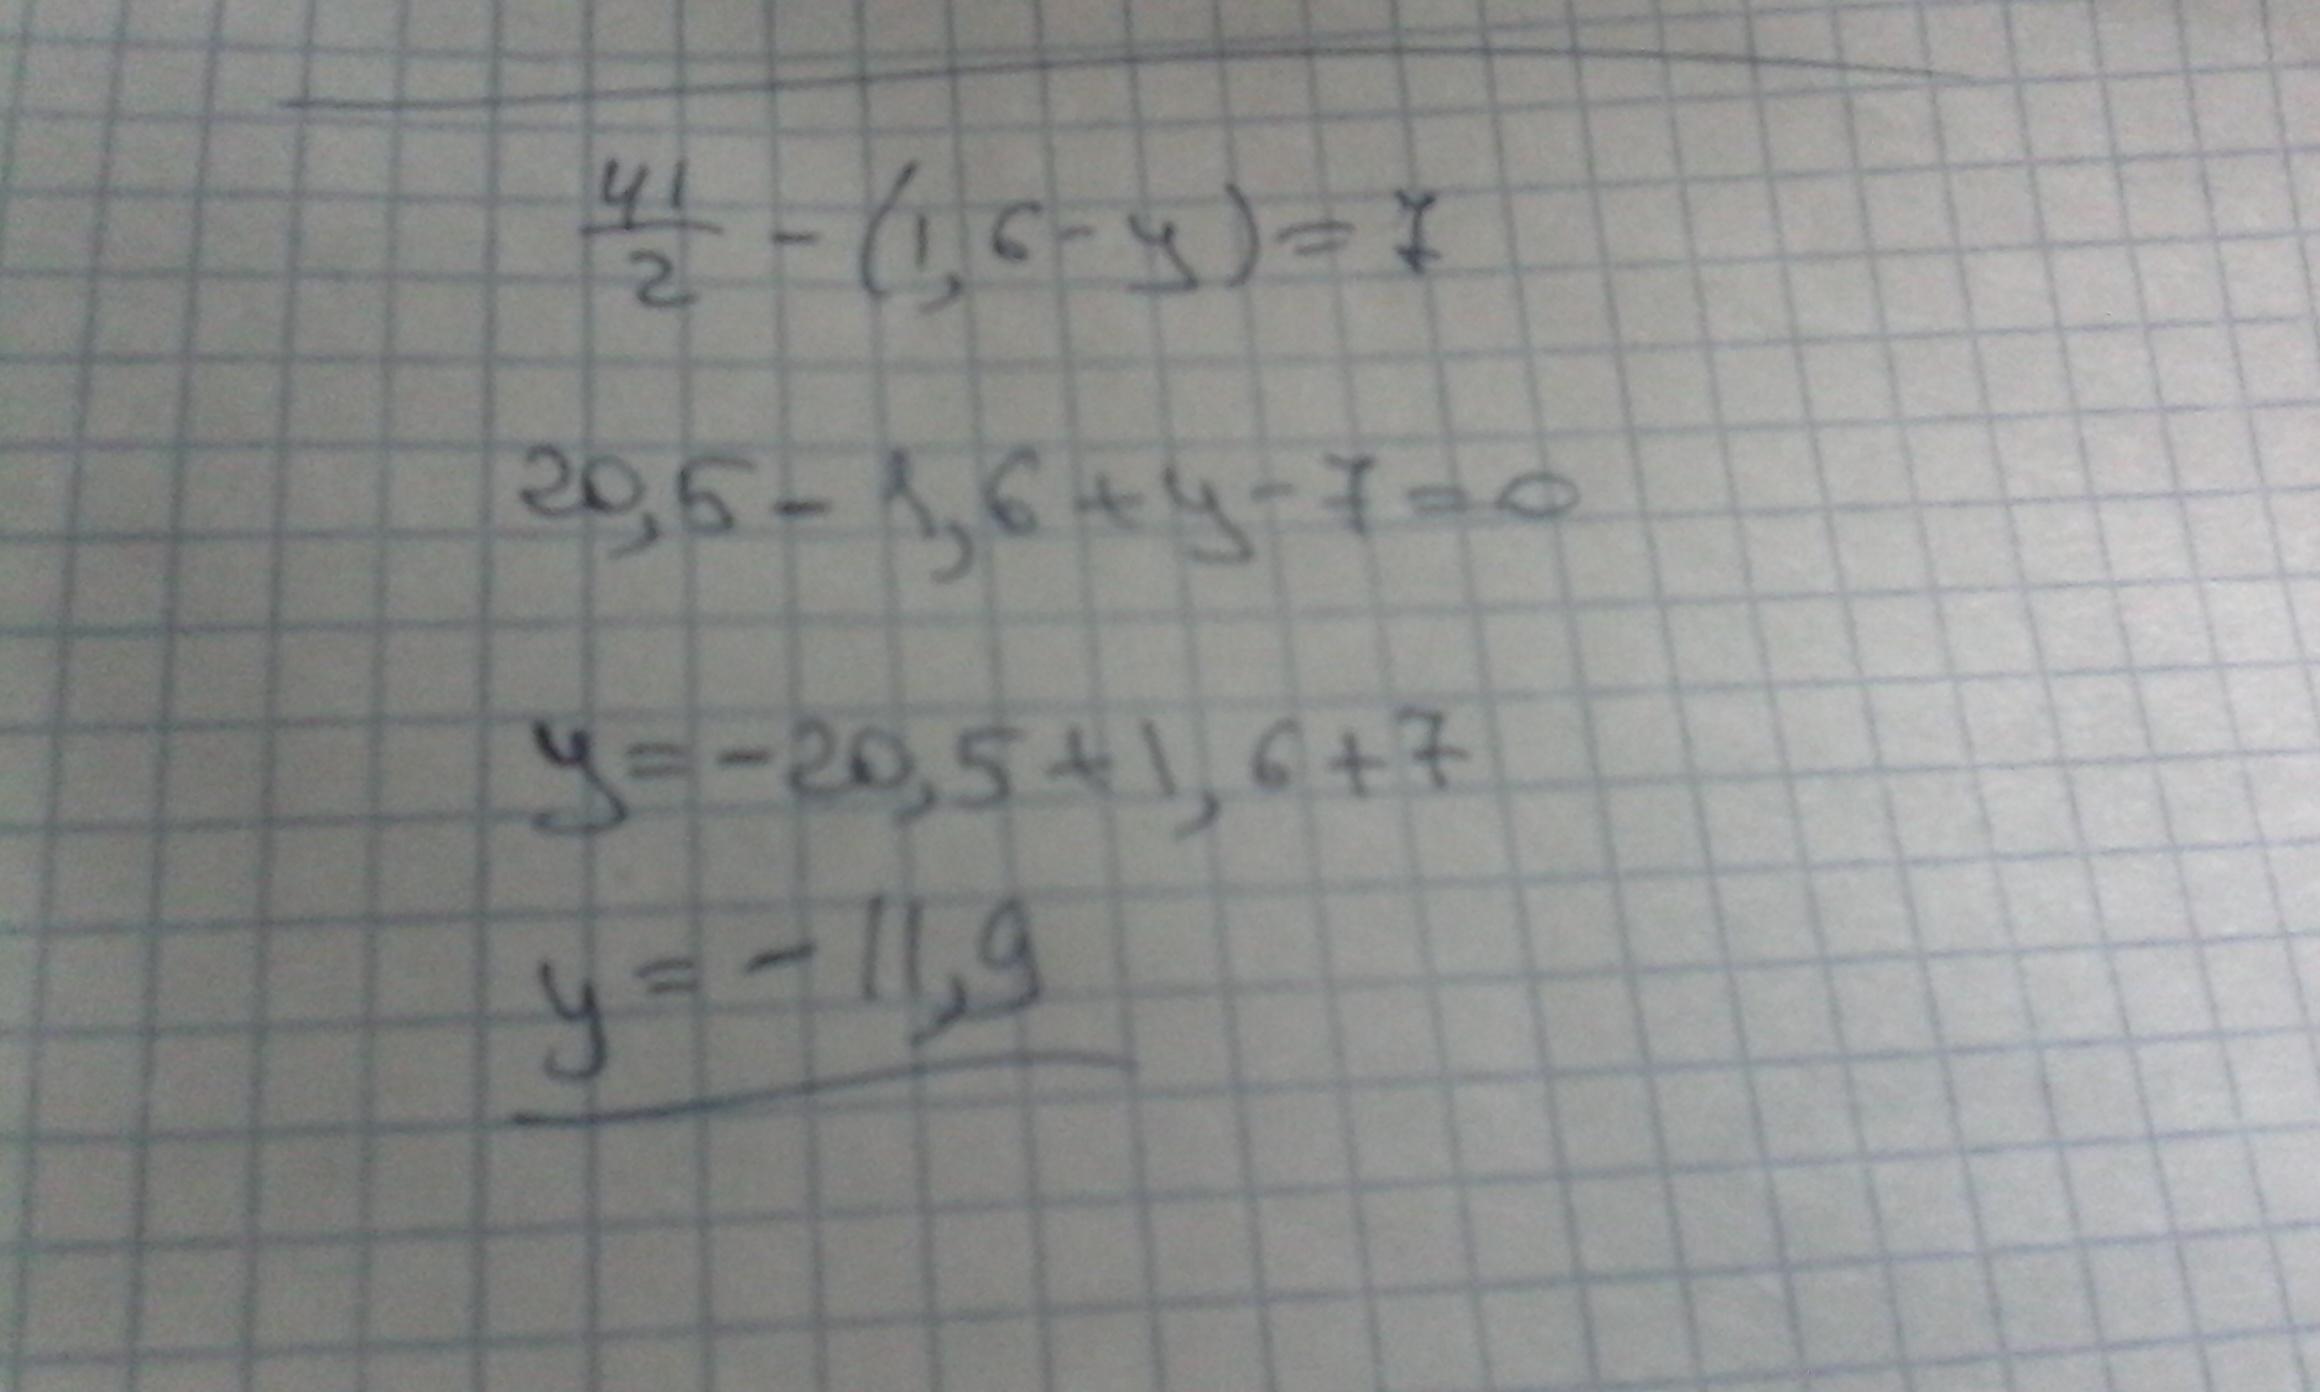 41/2 - (1,6 - y) = 7
20,5 - 1,6 + y - 7 = 0
y = -20,5 + 1,6 + 7
y = -11,9